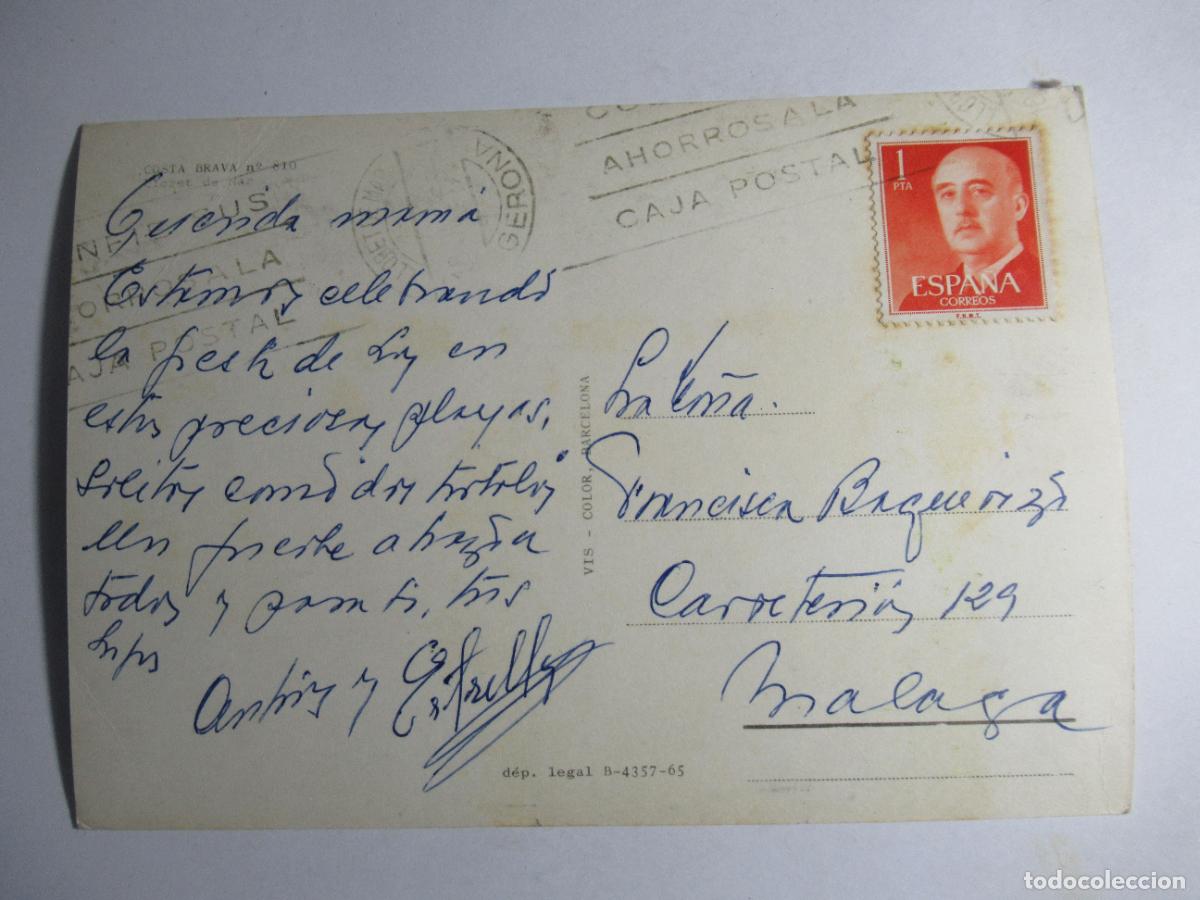 COSTA BRAVA nº 810
Lloret de Mar
Querida mamá
Estamos celebrando
la fiesta de hoy en
estas preciosas playas,
solitos como dos tortolos
Un fuerte abrazo a
todos y para ti, tus
hijos
Antonio y Estrella
AHORROS A LA
CAJA POSTAL
GERONA
US
AHORROS A LA
CAJA POSTAL
1
PTA
ESPAÑA
CORREOS
F.N.M.T.
VIS - COLOR, BARCELONA
Sra Doña.
Francisca Baquerizo
Carreterías 129
Malaga
dép. legal B-4357-65
todocoleccion